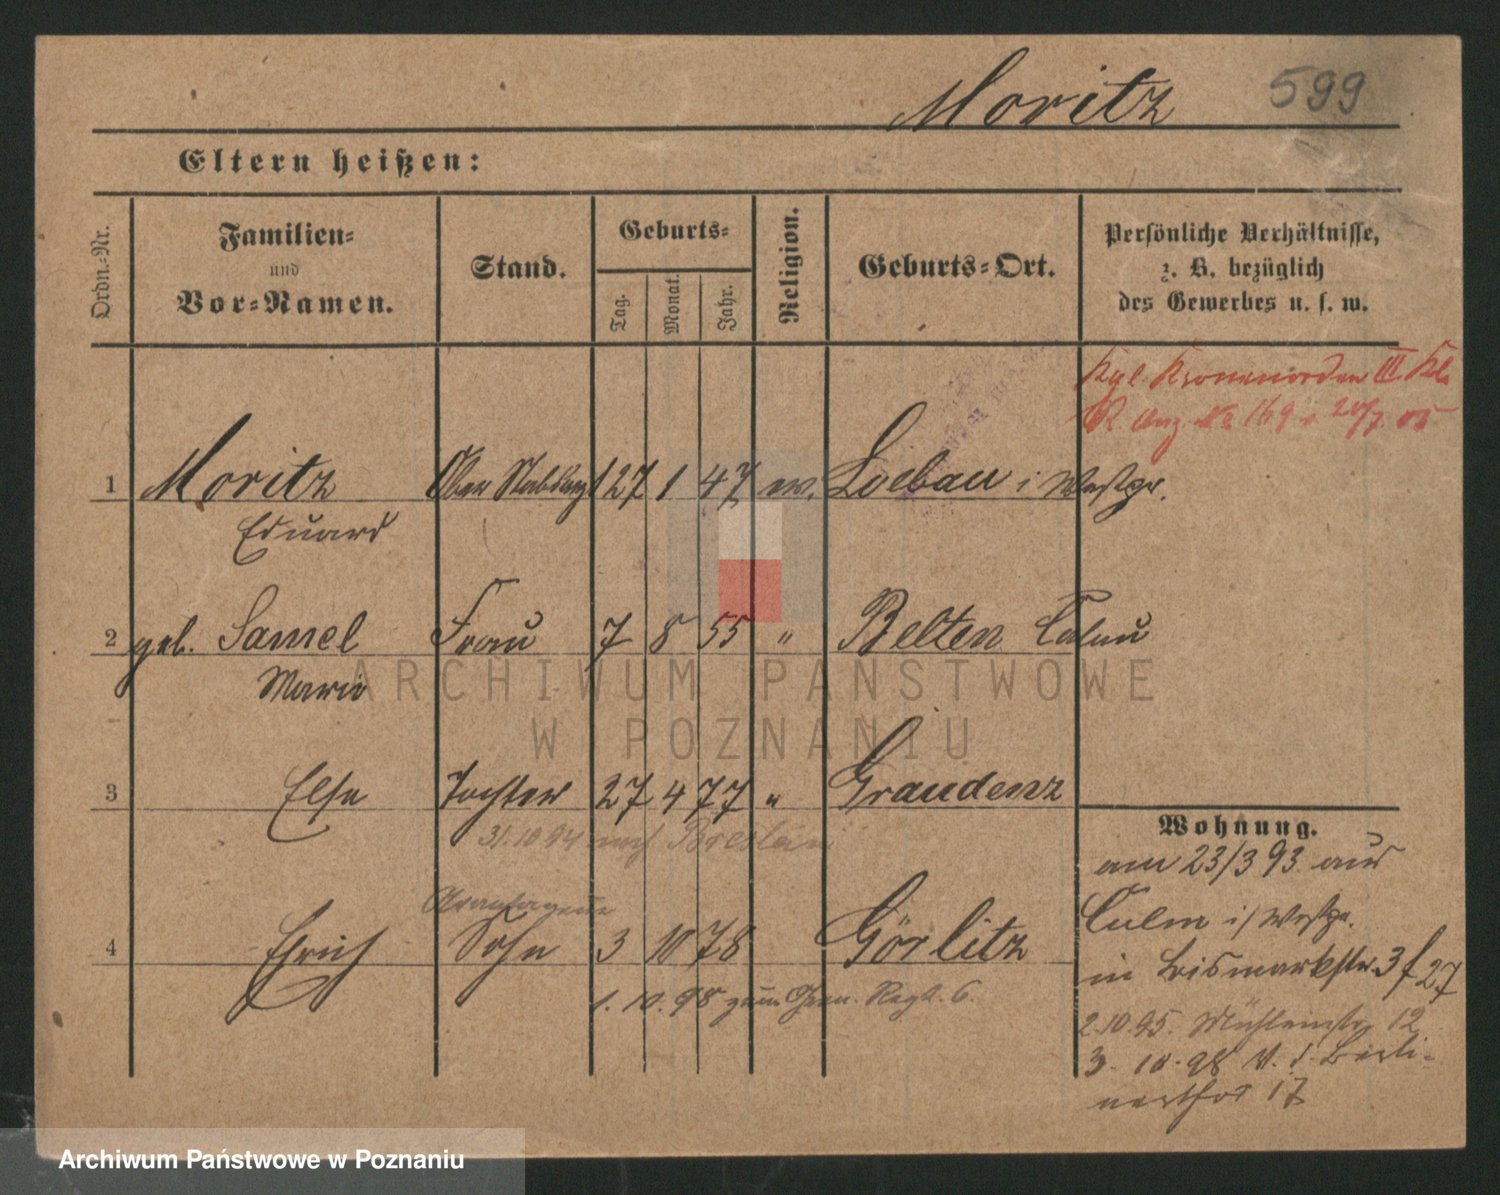 Moritz 599
Eltern heißen:
Ordn.-Nr.
Familien-
und
Vor-Namen.
Stand.
Geburts-
Tag.
Monat.
Jahr.
Religion.
Geburts-Ort.
Persönliche Verhältnisse,
z. B. bezüglich
des Gewerbes u. s. w.
Kgl. Kronenorden III Kl.
R. Anz. No 169 v 20/7. 05
1 Moritz Ober Stabsarzt 27 1 47 ev. Loebau i Westpr.
Eduard
2 geb. Samel Frau 7 8 55 " Belten Calau
Marie
3 Else Tochter 27 4 77 " Graudenz
31.10 94 nach Breslau
4 Erich Sohn 3 10 78 Görlitz
1. 10. 98 zum Gren. Regt. 6.
Wohnung.
am 23/3 93 aus
Culm i/ Westpr.
in Bismarkstr. 3 f 27
2.10.95. Mühlenstr 12
3. 10. 98 V. d. Berli-
nerthor 17
ARCHIWUM PAŃSTWOWE
W POZNANIU
Archiwum Państwowe w Poznaniu